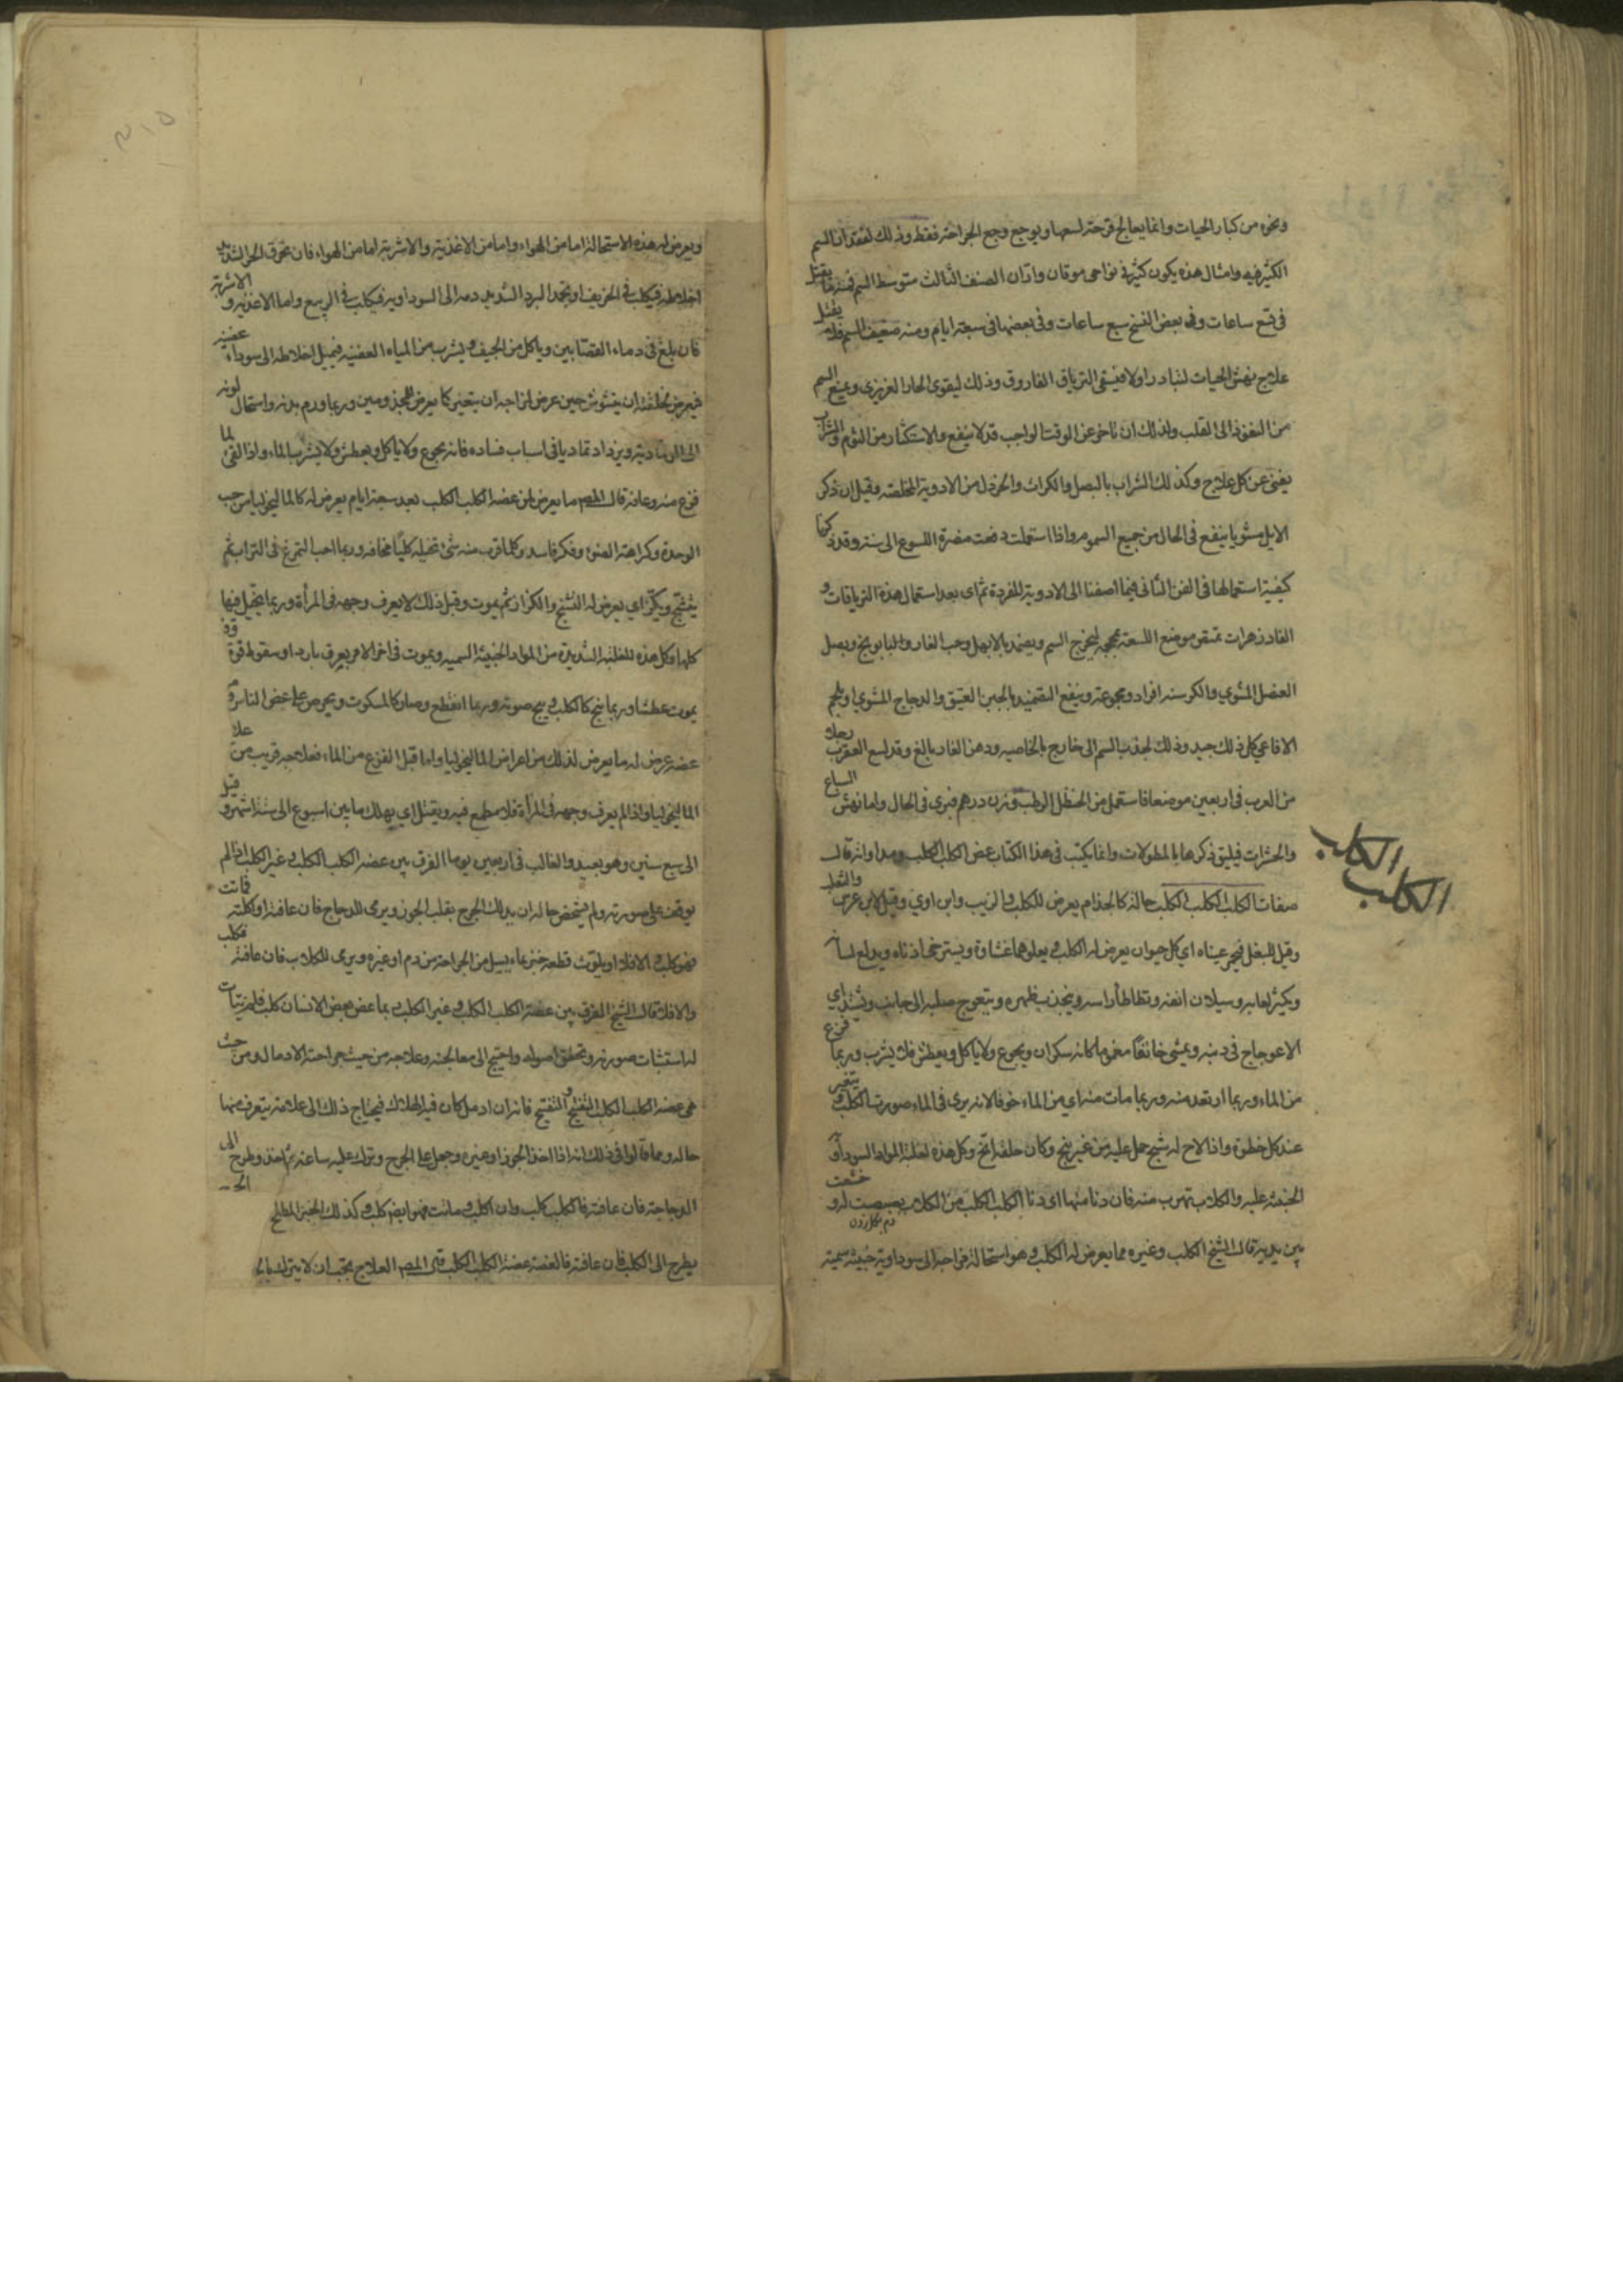 ونحوه من كبار الحيات وانما يعالج قرحته لسعها ويوجع وجع الجراحة فقط وذلك لفقدان السم
الكثير فيه وامثال هذه يكون كثيرة في نواحي موقان واران الصنف الثالث متوسط السم فمنه ما يقتل
في تسع ساعات وفي بعض النسخ سبع ساعات وفي بعضها في سبعة ايام ومنه ضعيف السم يقتل
علاج نهش الحيات لنبادر اولا فيسقى الترياق الفاروق وذلك ليقوي الحار الغريزي ويمنع السم
من النفوذ الى القلب ولذلك ان تاخر عن الوقت الواجب قد لا ينفع والاستكثار من الثوم والشراب
يغني عن كل علاج وكذلك الشراب بالبصل والكراث والخردل من الادوية المخلصة وقيل ان ذكر
الايل مشويا ينفع في الحال من جميع السموم واذا استعملت دفعت مضرة اللسوع الى سنة وقد ذكرنا
كيفية استعمالها في الفن الثاني فيما اضفنا الى الادوية المفردة ثم اي بعد استعمال هذه الترياقات و
الفادزهرات تمتص موضع اللسعة بمحجمة ليخرج السم ويضمد بالابهل وحب الغار والبابونج وبصل
العنصل المشوي والكرسنة افرادا ومجموعة وينفع التضميد بالجبن العتيق والدجاج المشوي او بلحم
الافاعي كل ذلك جيد وذلك لجذب السم الى خارج بالخاصية ودهن الغار بالغ وقد لسع العقرب رجلا
من العرب في اربعين موضعا فاستعمل من الحنظل الرطب وزن درهم فبري في الحال واما نهش السباع
والحشرات فيليق ذكرها بالمطولات وانما يكتب في هذا الكتاب عض الكلب الكلب ومداواته قال
الكلب
الكلب
صفات الكلب الكلب الكلب حالة كالجذام يعرض للكلب والذيب وابن اوي وقيل لابن عرس والثعلب
وقيل للبغل فيحمر عيناه اي كل حيوان يعرض له الكلب ويعلوهما غشاوة ويسترخي اذناه ويدلع لسانه
ويكثر لعابه وسيلان انفه ويطاطأ راسه وينجذب ظهره ويتعوج صلبه الى جانب ويشتد اي
الاعوجاج في ذنبه ويمشي خائفا مغموما كانه سكران ويجوع ولا ياكل ويعطش فلا يشرب وربما فزع
من الماء وربما ارتعد منه وربما مات منه اي من الماء خوفا لانه يرى في الماء صورت الكلب و يتغير
عند كل خطوة واذا لاح له شبح حمل عليه من غير نبح وكان حلقه ابح وكل هذه لغلبة المواد السوداوية
الخبيثة عليه والكلاب تهرب منه فان دنا منها اي دنا الكلب الكلب من الكلاب بصبصت له و خشعت
دم مكازدن
بين يديه قال الشيخ الكلب وغيره مما يعرض له الكلب وهو استحالة مزاجه الى سوداوية خبيثة سمية
٢١٥
ويعرض له هذه الاستحالة اما من الهواء واما من الاغذية والاشربة اما من الهواء فان يحرق الحر الشديد
اخلاطه فيكلب في الخريف او يجمد البرد الشديد دمه الى السوداوية فيكلب في الربيع واما الاغذية و الاشربة
فان يلغ في دماء القصابين وياكل من الجيف ويشرب من المياه العفنة فتميل اخلاطه الى سوداء عفنة
فيعرض لخلقته ان يتشوش حين عرض لمزاجه ان يتغير كما يعرض للمجذومين وربما ورم بدنه واستحال لونه
الى الرمادية ويزداد تماديا في اسباب فساده فانه يجوع ولا ياكل ويعطش ولا يشرب الماء واذا لقي ما
فزع منه وعافه قال المص ما يعرض لمن عضه الكلب الكلب بعد سبعة ايام يعرض له كالماليخوليا من حب
الوحدة وكراهة الضوء وفكر فاسد وكلما قرب منه شئ تخيله كلبا مخافة وربما احب التمرغ في التراب ثم
يتشنج ويكز اي يعرض له التشنج والكزاز ثم يموت وقبل ذلك لا يعرف وجهه في المرأة وربما يتخيل فيها
كلبا وكل هذه للغلبة الشديدة من المواد الخبيثة السمية ويموت في اخر الامر بعرق بارد او سقوط قوة وقد
يموت عطشا وربما نبح كالكلب وبح صوته وربما انقطع وصار كالمسكوت ويحرص على عض الناس من
عضه عرض له ما يعرض لذلك من اعراض الماليخوليا واما قبل الفزع من الماء فعلاجه قريب من علاج
الماليخوليا واذا لم يعرف وجهه في المرأة فلا مطمع فيه ويقتل اي يهلك ما بين اسبوع الى ستة اشهر و قيل
الى سبع سنين وهو بعيد والغالب في اربعين يوما الفرق بين عضه الكلب الكلب وغير الكلب اذا لم
يوقف على صورته ولم يتمحض حاله ان يدلك الجرح بقلب الجوز ويرمى للدجاج فان عافته او اكلته فماتت
فهو كلب والافلا او يلوث قطعة خبز بما يسيل من الجراحة من دم او غيره ويرمى للكلاب فان عافته فكلب
والافلا قال الشيخ الفرق بين عضة الكلب الكلب وغير الكلب ربما عض بعض الانسان كلب فلم يتات
له استثبات صورته وتحقق احواله واحتيج الى معالجته وعلاجه من حيث جراحته الادمال ومن حيث
هي عضه الكلب الكلب التفتيح و التفتيح فانه ان ادمل كان فيه الهلاك فيحتاج ذلك الى علامة يتعرف منها
حاله ومما قالوا في ذلك انه اذا اخذ الجوز او غيره وجعل على الجرح وترك عليه ساعة ثم اخذ وطرح الى
الدجاجة فان عافته فالكلب كلب وان اكلت وماتت فهو ايضا كلب وكذلك الخبز الملطخ
يطرح الى الكلب فان عافته فالعضة عضة الكلب الكلب قال المص العلاج يجب ان لا يترك